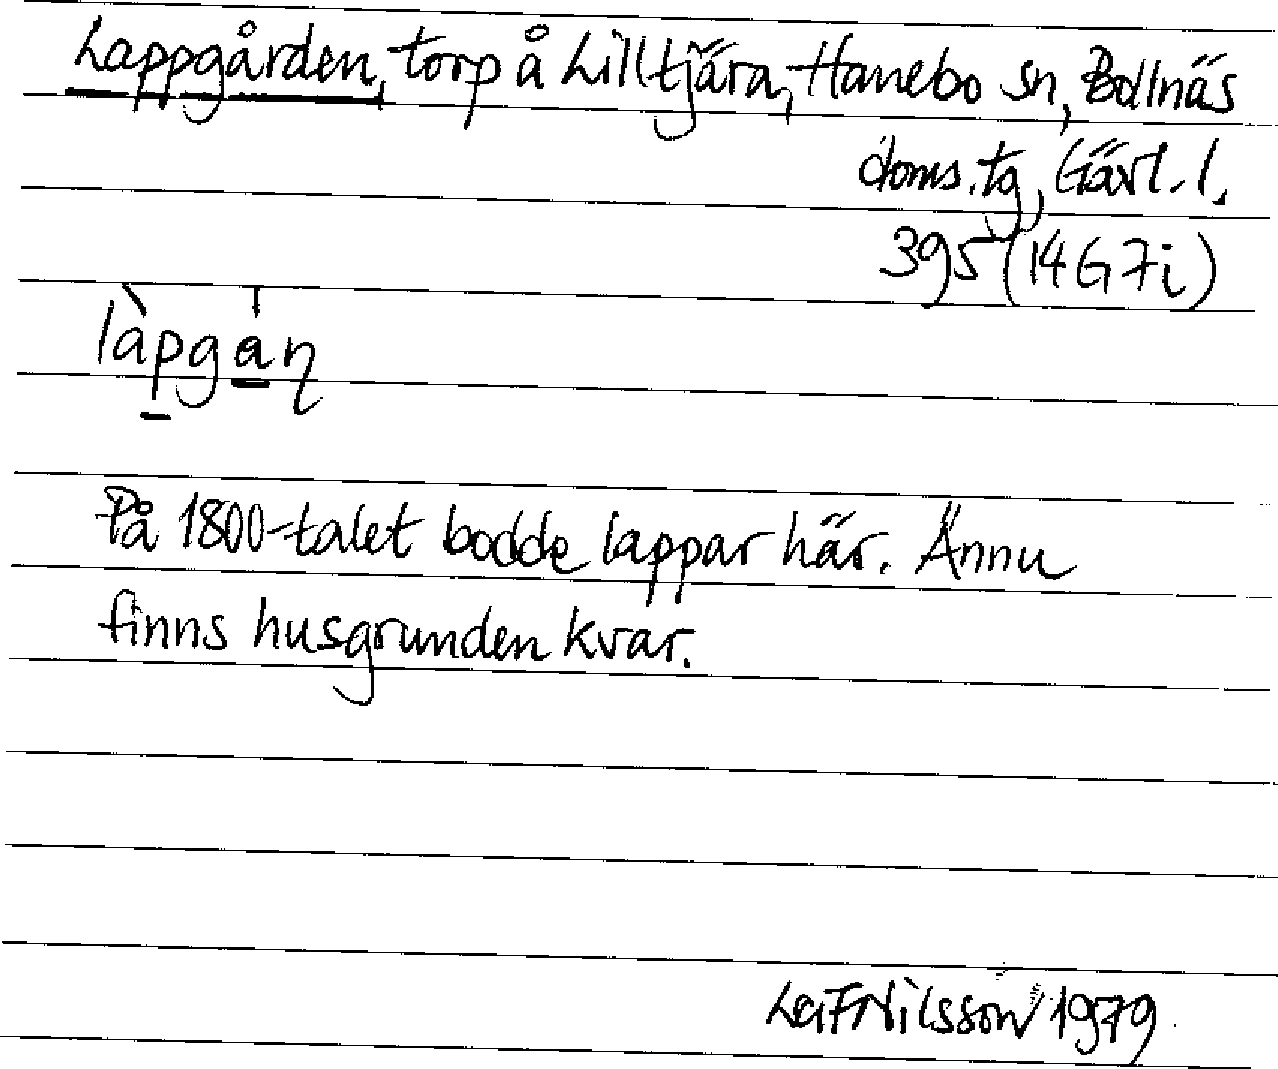 Lappgården, torp å Lilltjära, Hanebo sn, Bollnäs
doms.tg, Gävl. l.
395 (14G 7i)
làpgaṇ
På 1800-talet bodde lappar här. Ännu
finns husgrunden kvar.
Leif Nilsson 1979